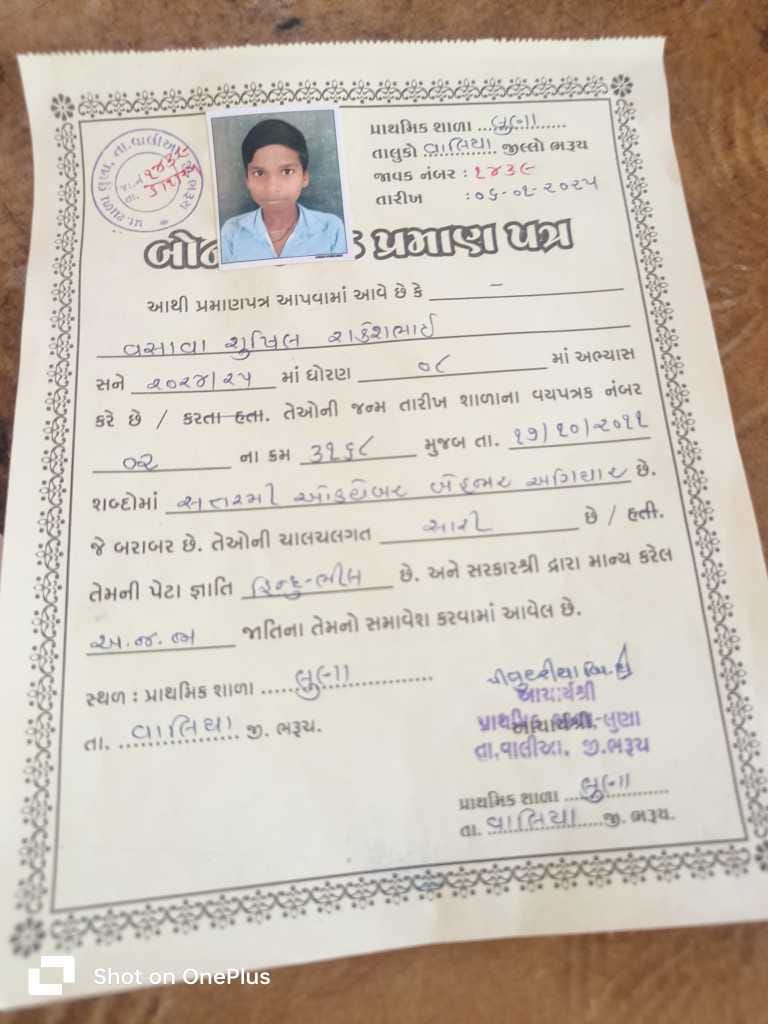 પ્રાથમિક શાળા ....લુણા..........
તાલુકો વાલિયા જીલ્લો ભરૂચ
જાવક નંબર : ૧૪૩૯
તારીખ : ૦૬-૦૧-૨૦૨૫
પ્રમાણ પત્ર
આથી પ્રમાણપત્ર આપવામાં આવે છે કે
વસાવા સુમિલ રાકેશભાઈ
સને ૨૦૨૪/૨૫ માં ધોરણ ૦૮ માં અભ્યાસ
કરે છે / કરતા હતા. તેઓની જન્મ તારીખ શાળાના વયપત્રક નંબર
૦૨ ના ક્રમ ૩૧૬૮ મુજબ તા. ૧૭/૧૦/૨૦૧૧
શબ્દોમાં સત્તરમી ઓક્ટોબર બેહજાર અગિયાર છે.
જે બરાબર છે. તેઓની ચાલચલગત સારી છે / હતી.
તેમની પેટા જ્ઞાતિ હિન્દુ-ભીલ છે. અને સરકારશ્રી દ્વારા માન્ય કરેલ
અ.જ.જા જાતિના તેમનો સમાવેશ કરવામાં આવેલ છે.
સ્થળ : પ્રાથમિક શાળા .....લુણા.............
તા. વાલિયા જી. ભરૂચ.
આચાર્યશ્રી
પ્રાથમિક શાળા-લુણા
આચાર્યશ્રી,
તા.વાલીયા, જી.ભરૂચ
પ્રાથમિક શાળા ...લુણા..........
તા. વાલિયા જી. ભરૂચ.
Shot on OnePlus